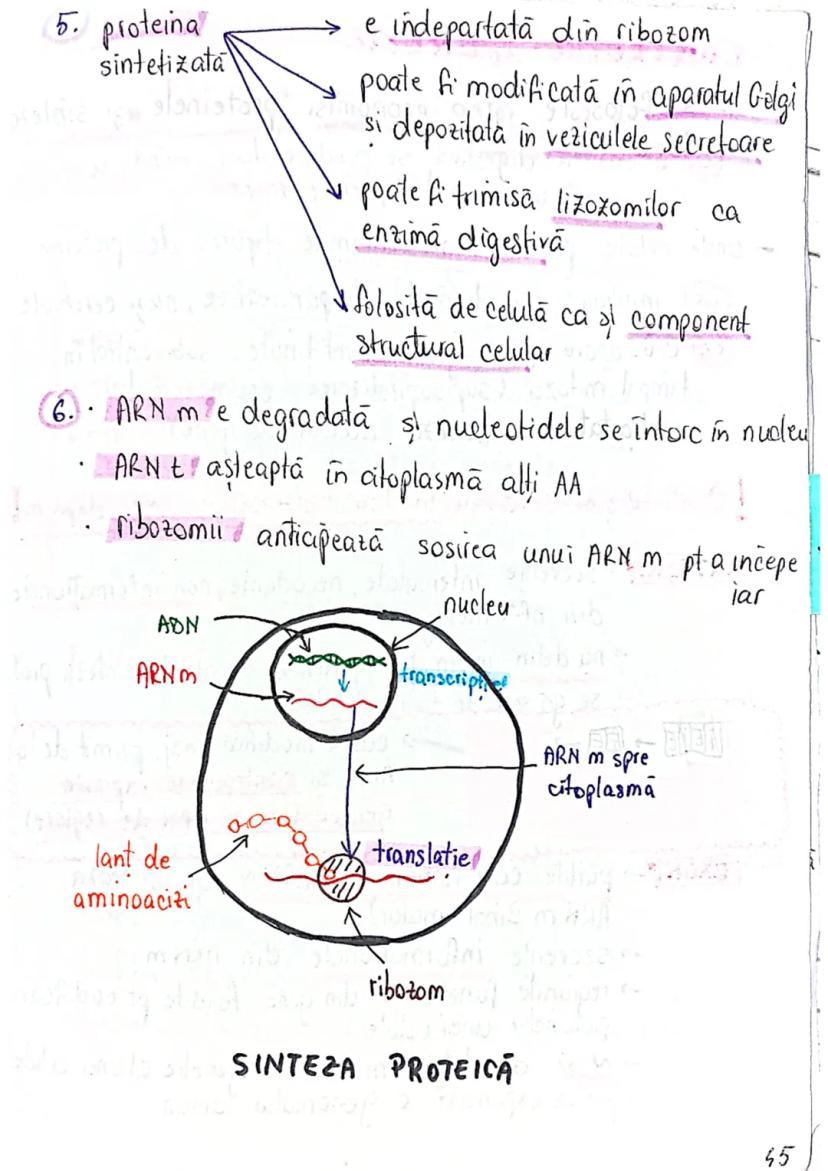 5. proteina
sintetizată
e îndepartată din ribozom
poate fi modificată în aparatul Golgi
și depozitată în veziculele secretoare
poate fi trimisă lizozomilor ca
enzimă digestivă
folosită de celulă ca și component
structural celular
6. · ARN m e degradată și nucleotidele se întorc în nucleu
· ARN t așteaptă în citoplasmă alți AA
· ribozomii anticipează sosirea unui ARN m pt a începe
iar
nucleu
ADN
ARN m
transcripție
ARN m spre
citoplasmă
translatie
lant de
aminoacizi
ribozom
SINTEZA PROTEICĂ
45